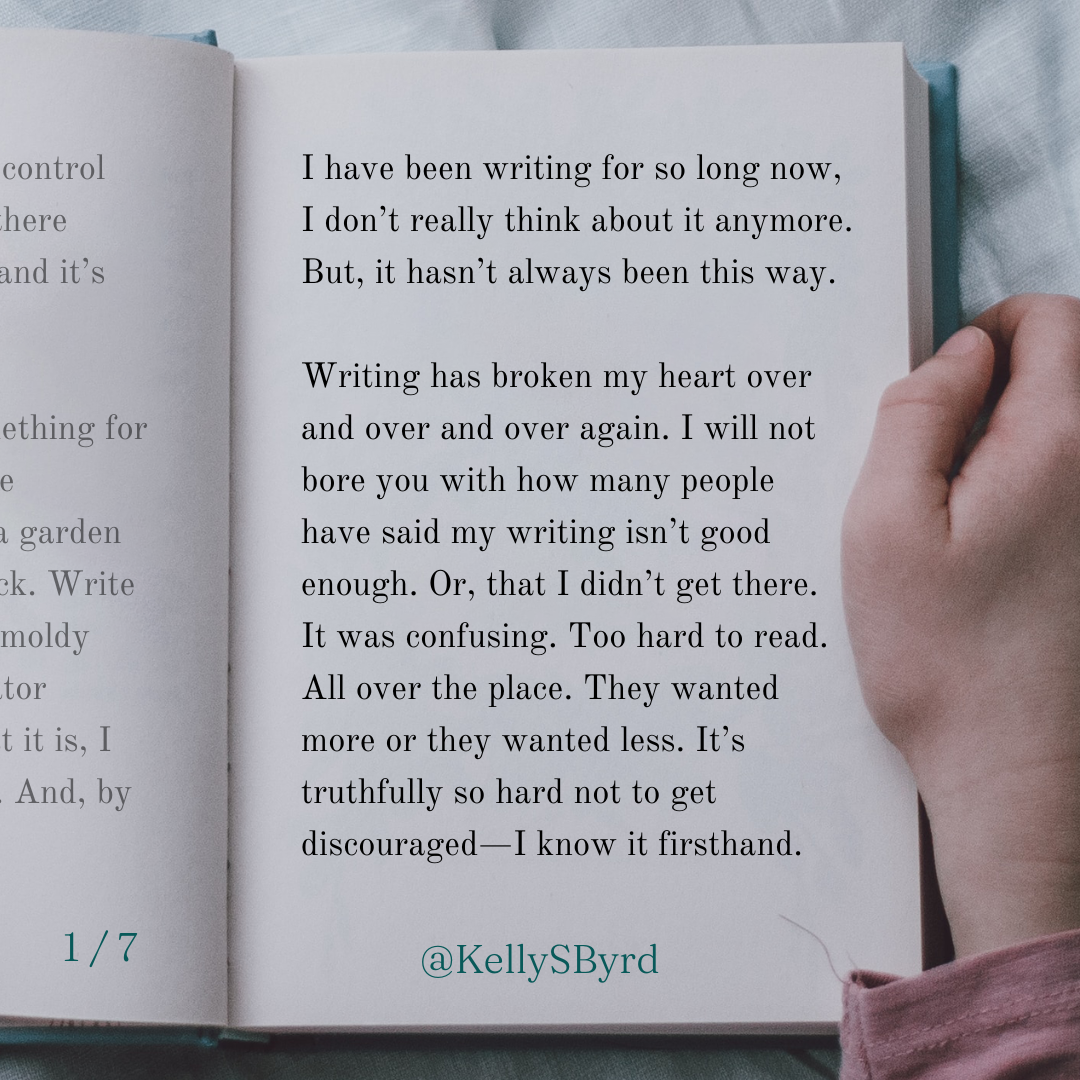 control
there
and it's
for
a garden
Write
moldy
it is, I
And, by
1/7
I have been writing for so long now,
I don't really think about it anymore.
But, it hasn't always been this way.
Writing has broken my heart over
and over and over again. I will not
bore you with how many people
have said my writing isn't good
enough. Or, that I didn't get there.
It was confusing. Too hard to read.
All over the place. They wanted
more or they wanted less. It's
truthfully so hard not to get
discouraged—I know it firsthand.
@KellySByrd